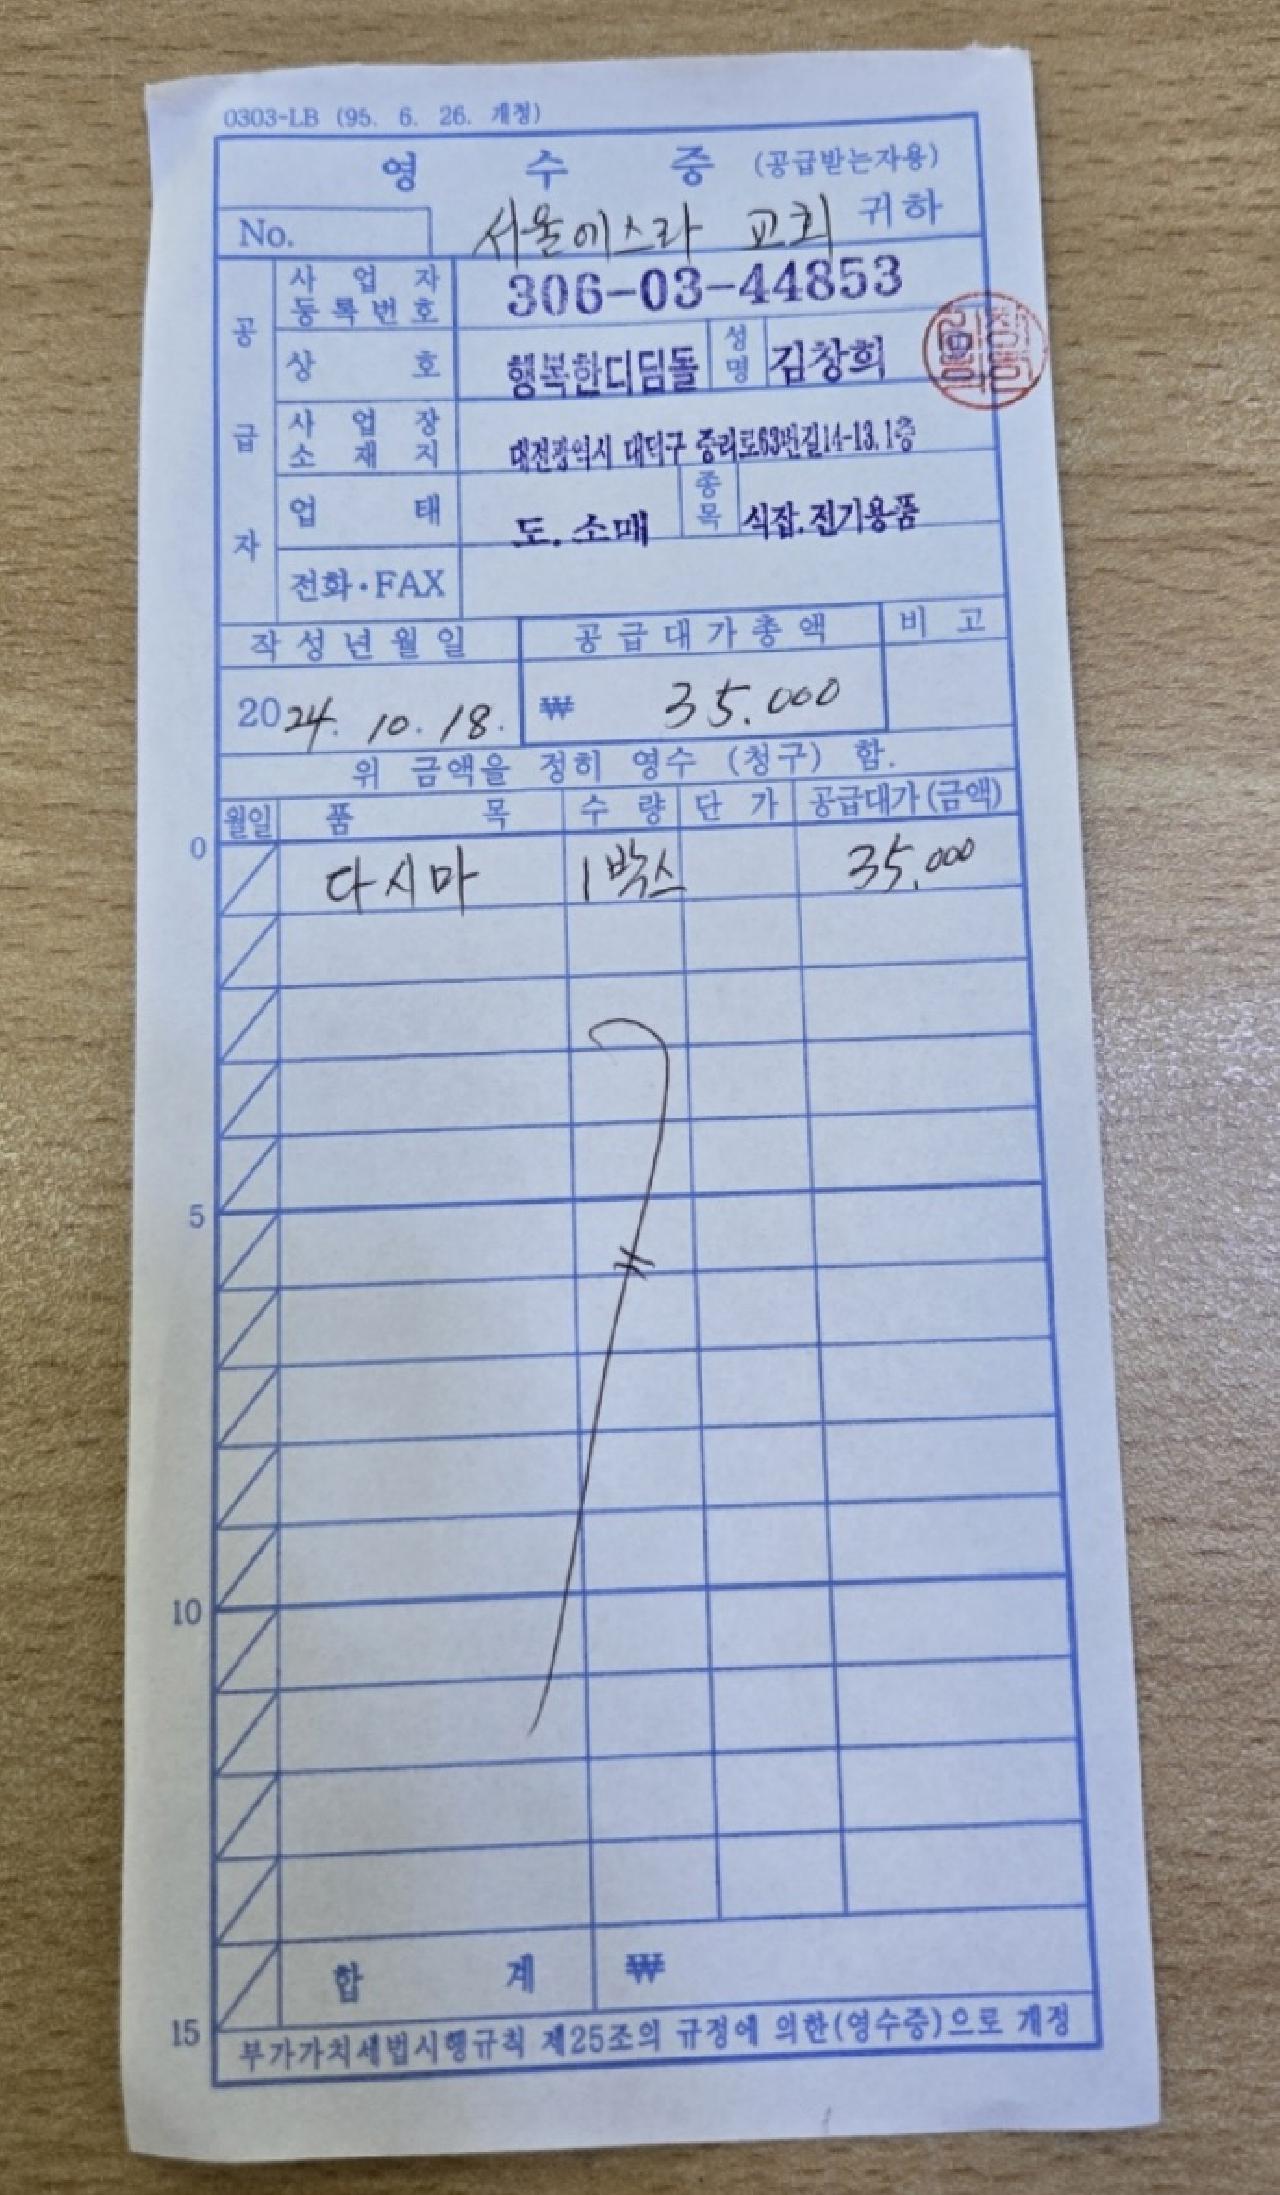 0303-LB (95. 6. 26. 개정)
영 수 증 (공급받는자용)
No. 서울에스라 교회 귀하
공급자
사업자등록번호 306-03-44853
상호 행복한디딤돌 성명 김창희
사업장소재지 대전광역시 대덕구 중리로63번길14-13.1층
업태 도.소매 종목 식잡.전기용품
전화·FAX
작성년월일 공급대가총액 비고
2024. 10. 18. ₩ 35.000
위 금액을 정히 영수 (청구) 함.
월일 품목 수량 단가 공급대가(금액)
0
다시마 1박스 35.000
5
10
합계 ₩
15
부가가치세법시행규칙 제25조의 규정에 의한(영수증)으로 개정